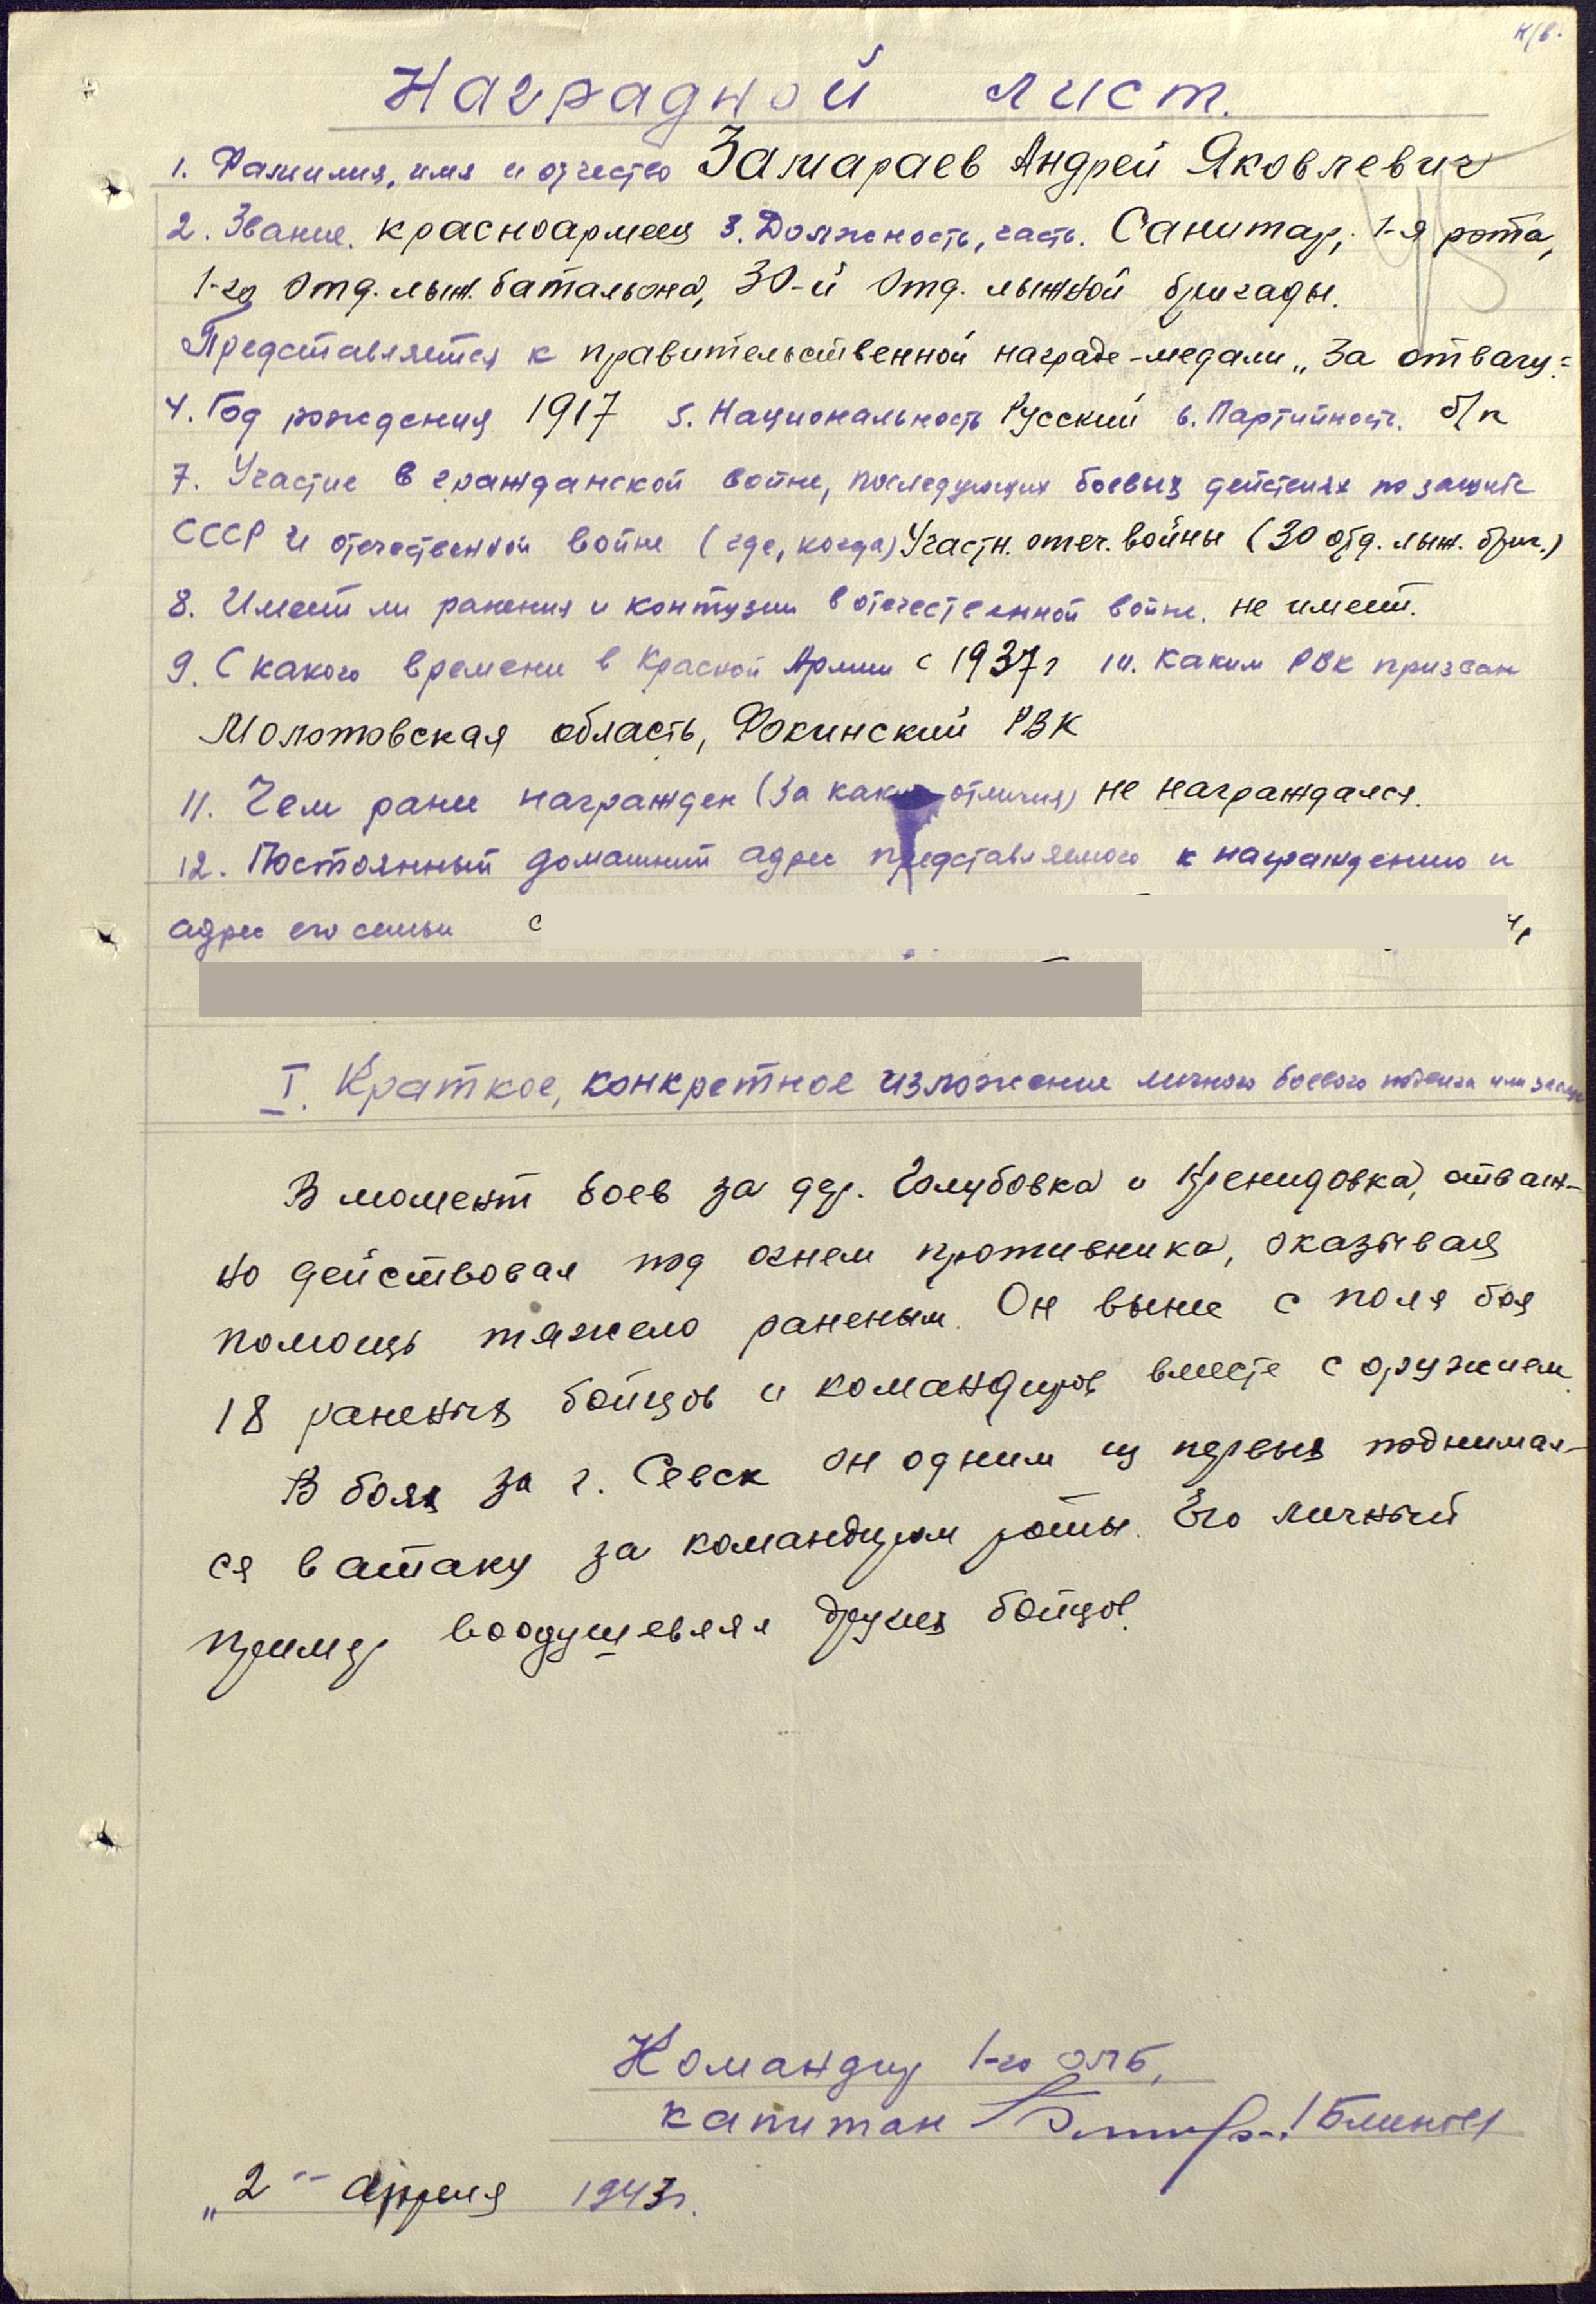 н/в.
Наградной лист.
1. Фамилия, имя и отчество Замараев Андрей Яковлевич
2. Звание. красноармеец 3. Должность, часть. Санитар, 1-я рота,
1-го отд. лыж. батальона, 30-й отд. лыжной бригады.
Представляется к правительственной награде - медали „За отвагу"
4. Год рождения 1917 5. Национальность Русский 6. Партийность. б/п
7. Участие в гражданской войне, последующих боевых действиях по защите
СССР и отечественной войне (где, когда) Участн. отеч. войны (30 отд. лыж. бриг.)
8. Имеет ли ранения и контузии в отечественной войне. не имеет.
9. С какого времени в Красной Армии с 1937г 10. Каким РВК призван
Молотовская область, Фокинский РВК
11. Чем ранее награжден (за какие отличия) не награждался.
12. Постоянный домашний адрес представляемого к награждению и
адрес его семьи с
I. Краткое, конкретное изложение личного боевого подвига или заслуг
В момент боев за дер. Голубовка и Кренидовка, отваж-
но действовал под огнем противника, оказывая
помощь тяжело раненым. Он вынес с поля боя
18 раненых бойцов и командиров вместе с оружием.
В боях за г. Севск он одним из первых поднимал-
ся в атаку за командиром роты. Его личный
пример воодушевлял других бойцов.
Командир 1-го олб,
капитан /Блинов/
„2" апреля 1943г.